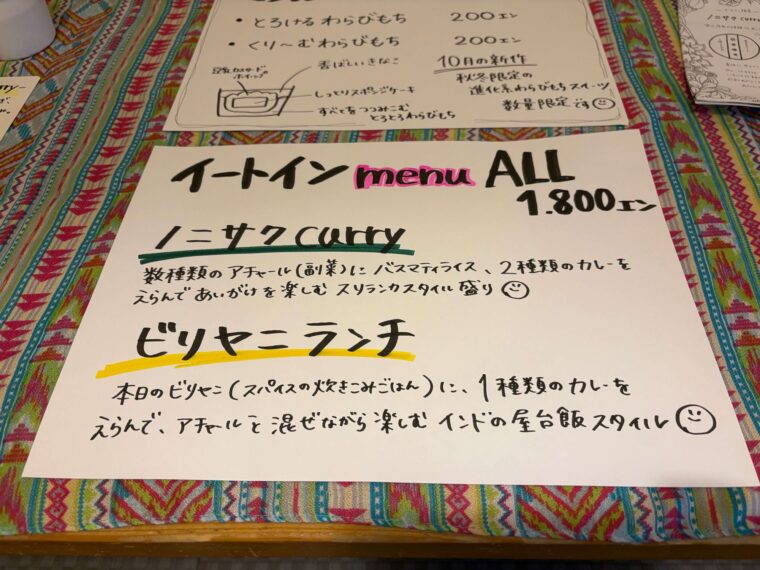 • とろける わらびもち 200エン
• くり〜むわらびもち 200エン
香ばしいきなこ
豆乳カスタード
ホイップ
しっとりスポンジケーキ
すべてをつつみこむ
とろとろわらびもち
10月の新作
秋冬限定の
進化系わらびもちスイーツ
数量限定です
ノニサク curry
イートイン menu ALL
1.800エン
ノニサク curry
数種類のアチャール(副菜)に バスマティライス、2種類のカレーを
えらんで あいがけを楽しむ スリランカスタイル盛り
ビリヤニランチ
本日のビリヤニ(スパイスの炊きこみごはん)に、1種類のカレーを
えらんで、アチャールと混ぜながら楽しむ インドの屋台飯スタイル